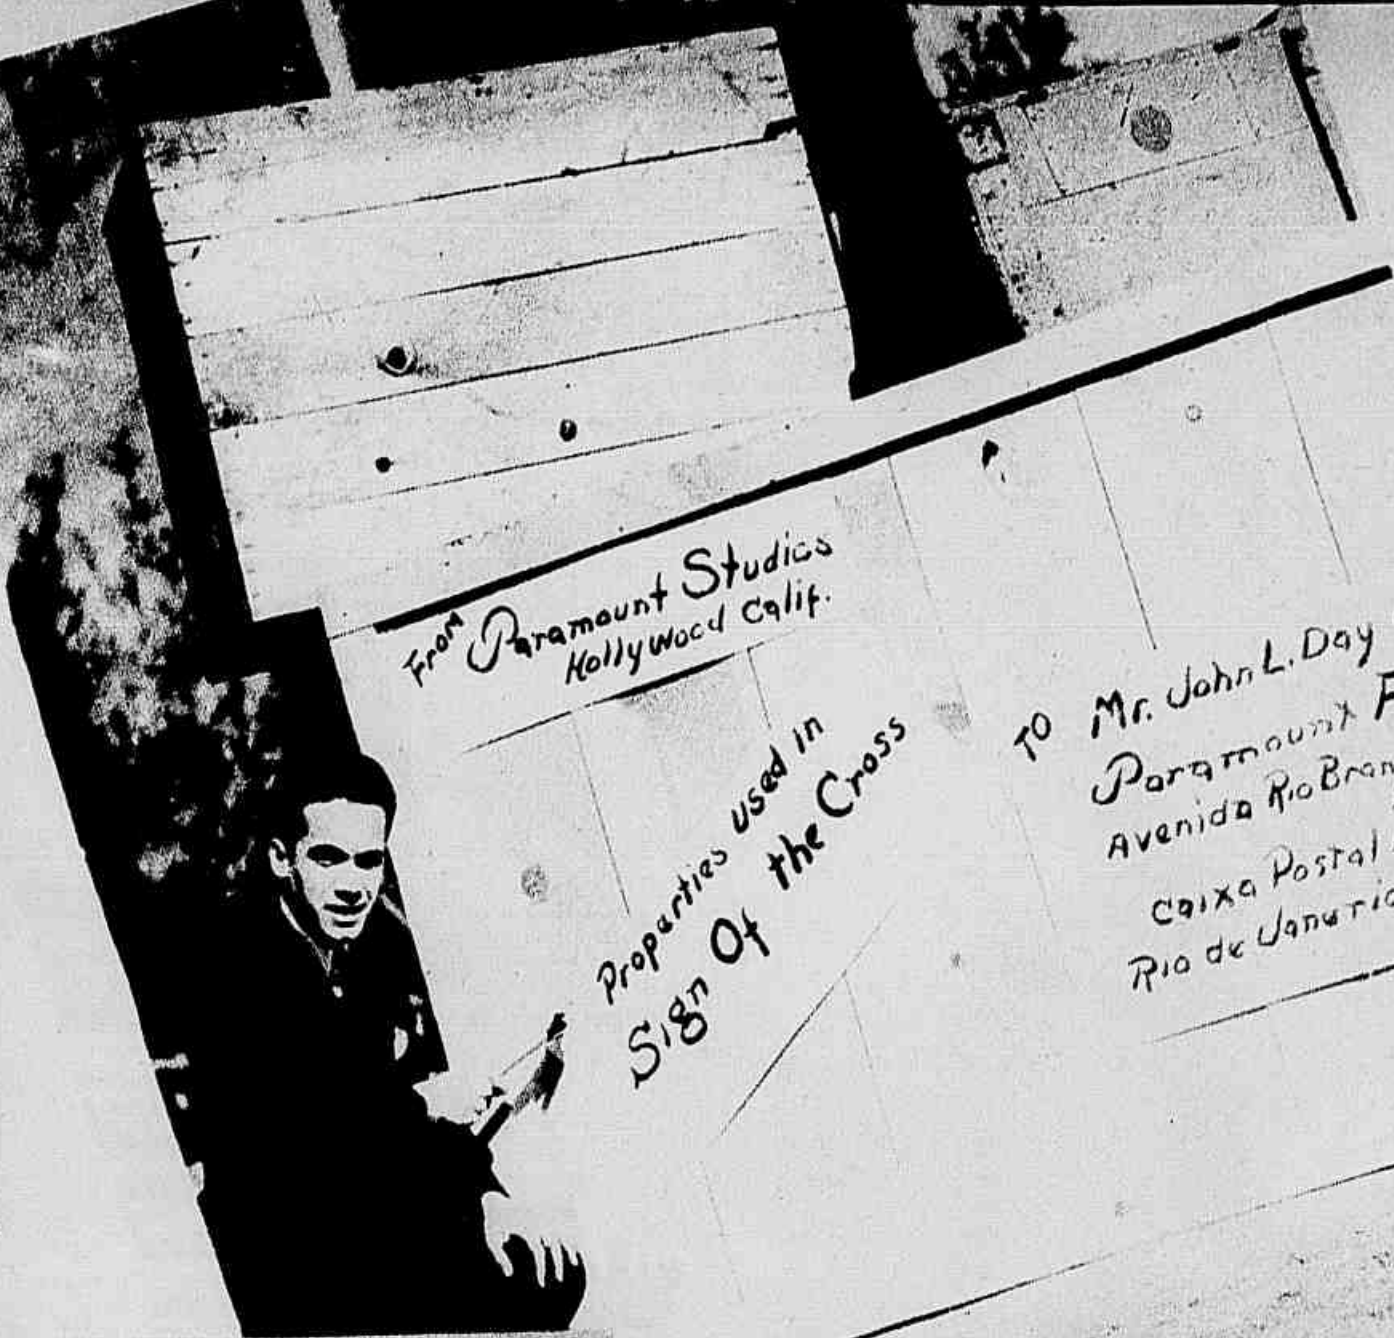 From Paramount Studios
Hollywood Calif.
Properties used in
Sign Of the Cross
TO Mr. John L. Day
Paramount F
Avenida Rio Bran
Caixa Postal
Rio de Janerio